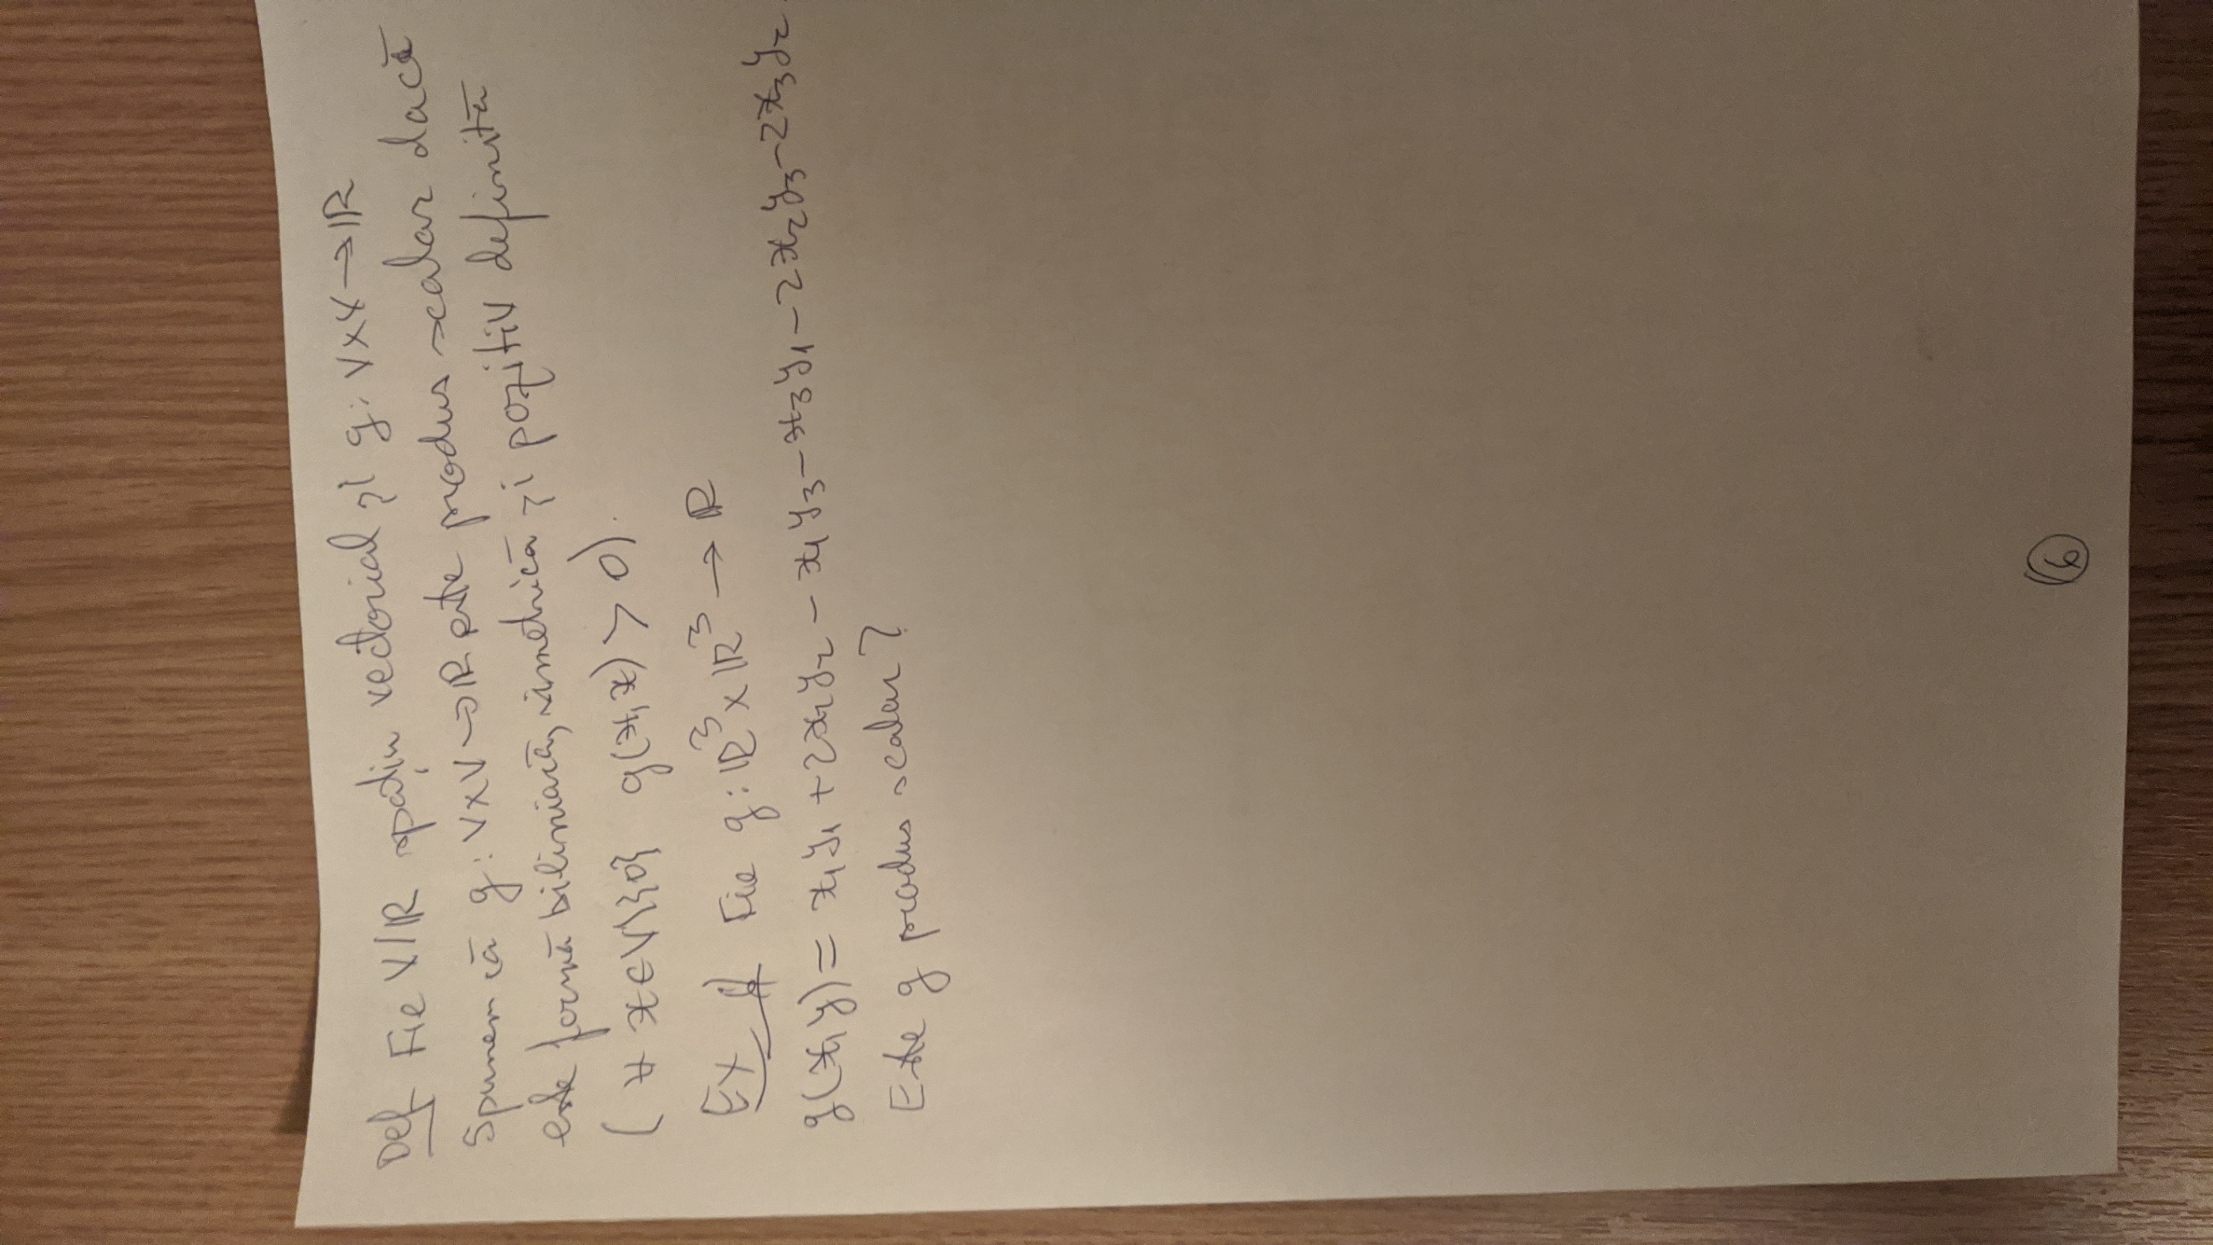 Def Fie V/ℝ spațiu vectorial și g: V×V→ℝ
Spunem că g: V×V→ℝ este produs scalar dacă
este formă biliniară, simetrică și pozitiv definită
( ∀ x∈V\{0} g(x,x) > 0).
Ex Fie g: ℝ³×ℝ³ → ℝ
g(x,y) = x₁y₁ + 2x₂y₂ − x₁y₃ − x₃y₁ − 2x₂y₃ − 2x₃y₂
Este g produs scalar?
6